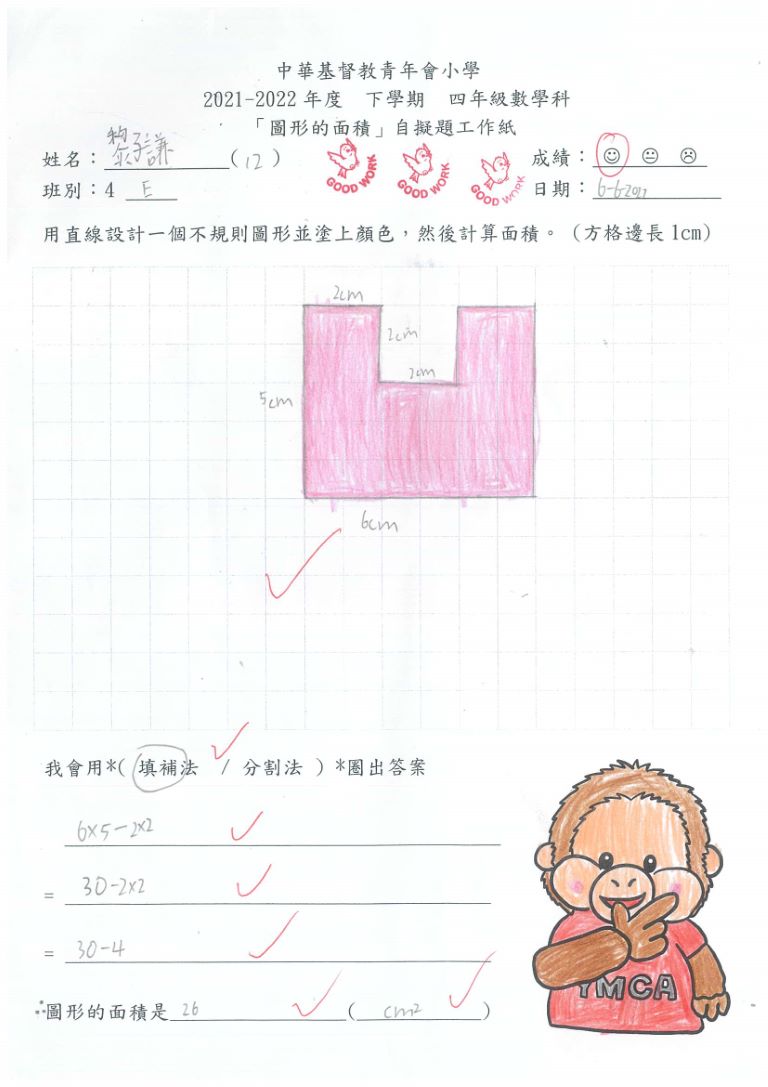 中華基督教青年會小學
2021-2022 年度 下學期 四年級數學科
「圖形的面積」自擬題工作紙
姓名：黎子謙(12) GOOD WORK GOOD WORK GOOD WORK 成績：☺ 😐 ☹
班別：4 E 日期：6-6-2022
用直線設計一個不規則圖形並塗上顏色，然後計算面積。(方格邊長 1cm)
2cm
2cm
2cm
5cm
6cm
我會用*( 填補法 / 分割法 ) *圈出答案
6×5-2×2
= 30-2×2
= 30-4
∴圖形的面積是 26 ( cm² )
YMCA